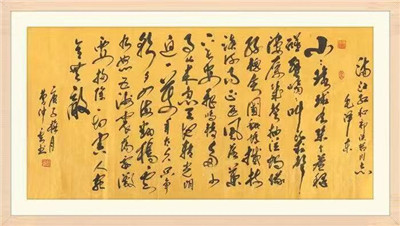 满江红和郭沫若同志
毛泽东
小小寰球有几个苍蝇
碰壁嗡嗡叫几声
凄厉几声抽泣蚂蚁
缘槐夸大国蚍蜉撼树
谈何易正西风落叶
下长安飞鸣镝多少
事从来急天地转光阴
迫一万年太久只争
朝夕四海翻腾云水
怒五洲震荡风雷激
要扫除一切害人虫
全无敌